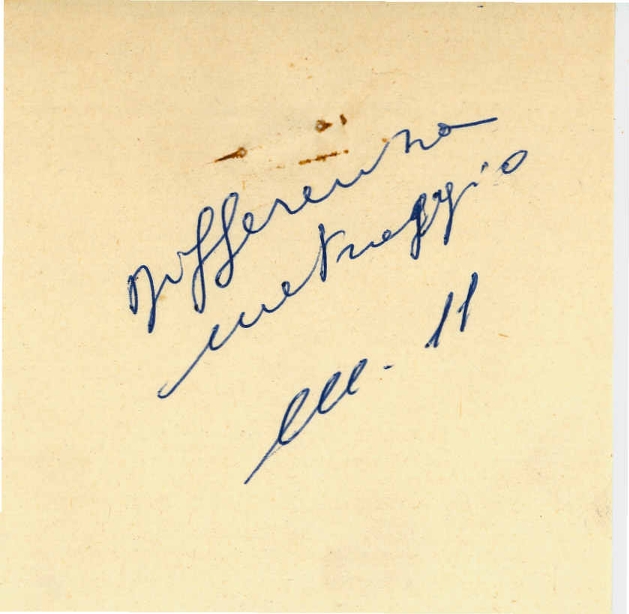 Differenza
metraggio
M. 11